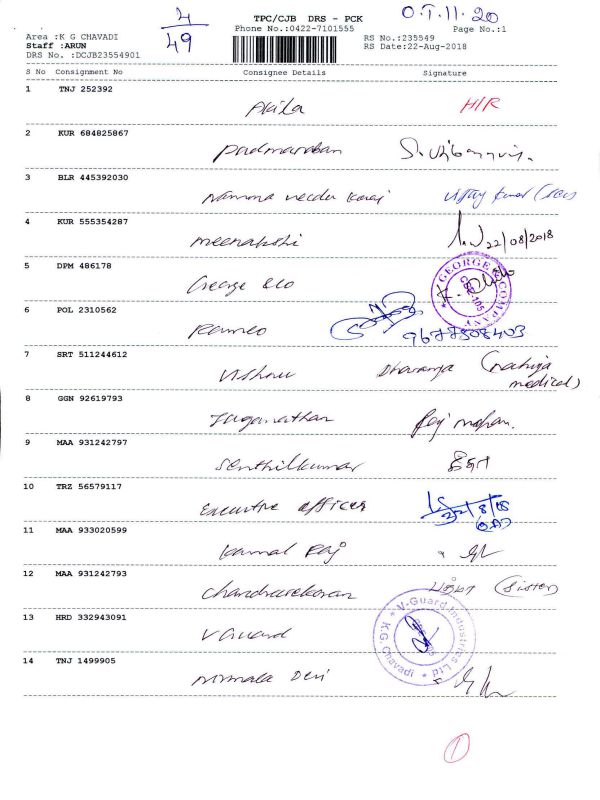 4/49
TPC/CJB DRS - PCK
O.T.11.20
Phone No.:0422-7101555
Page No.:1
Area :K G CHAVADI
RS No.:235549
Staff :ARUN
RS Date:22-Aug-2018
DRS No. :DCJB23554901
S No Consignment No Consignee Details Signature
1 TNJ 252392
Akila H/R
2 KUR 684825867
Padmanaban
3 BLR 445392030
Namma
4 KUR 555354287
meenakshi 22/08/2018
5 DPM 486178
George & Co
GEORGE & COMPANY
CBE-105
6 POL 2310562
Romeo
9677808403
7 SRT 511244612
Vishnu Dharanya
medical)
8 GGN 92619793
Jaganathan Raj mohan.
9 MAA 931242797
Senthilkumar
10 TRZ 56579117
Executive officer
22/8/18
11 MAA 933020599
Kamal Raj
12 MAA 931242793
Chandrasekaran (Sister)
13 HRD 332943091
V Guard
V-Guard Industries Ltd
K.G. Chavadi
14 TNJ 1499905
Nirmala Devi
1